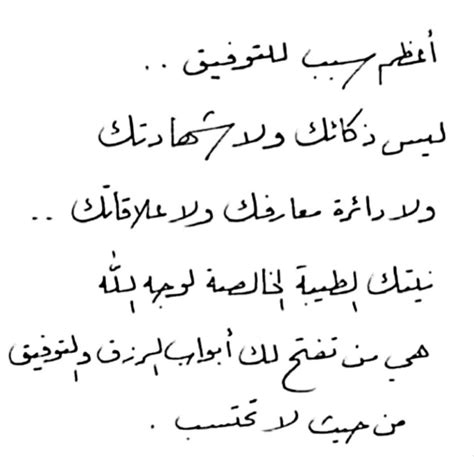 أعظم سبب للتوفيق ..
ليس ذكائك ولا شهادتك
ولا دائرة معارفك ولا علاقاتك ..
نيتك الطيبة الخالصة لوجه الله
هي من تفتح لك أبواب الرزق والتوفيق
من حيث لا تحتسب .